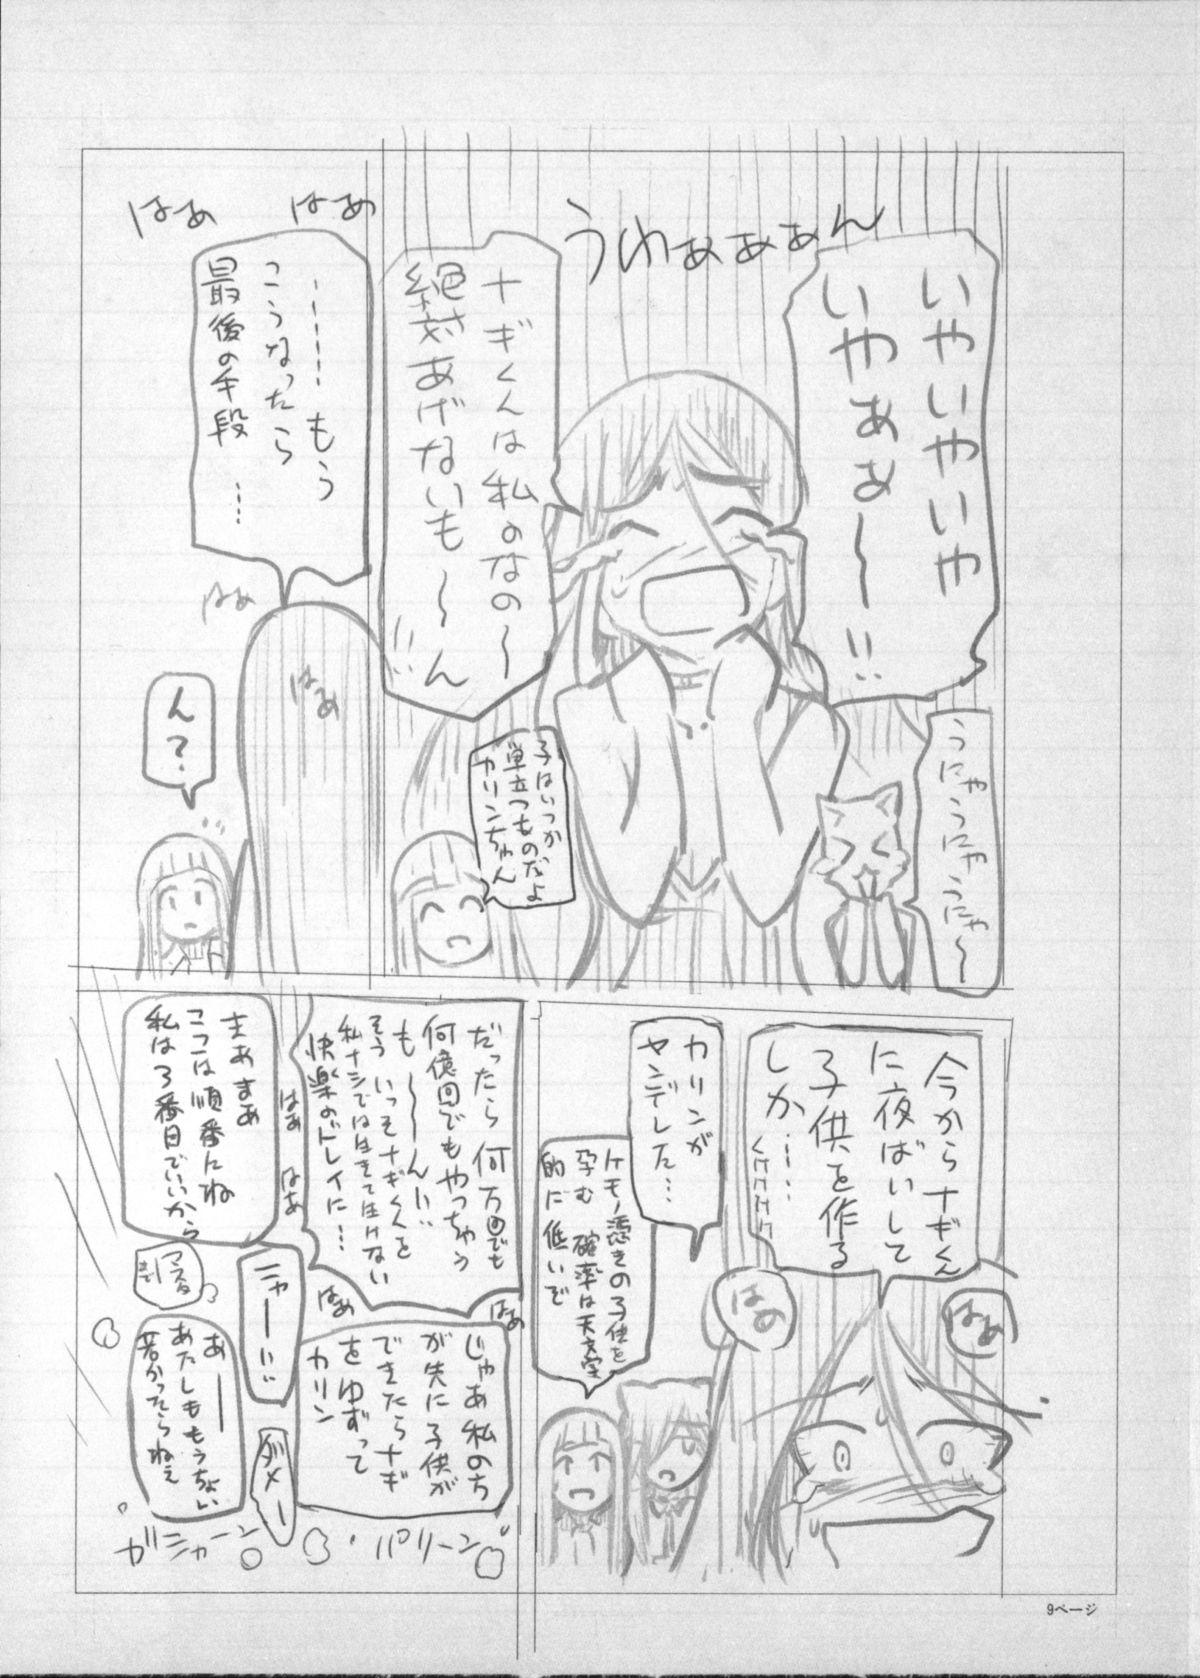 いやいやいや
いやぁあ～!!
うわぁぁぁん
うにゃうにゃうにゃ～
ナギくんは私のなの～
絶対あげないも～ん!!
子はいつか
巣立つものだよ
カリンちゃん
はぁ
はぁ
……もう
こうなったら
最後の手段…
はぁ
はぁ
ん?
今からナギくん
に夜ばいして
子供を作る
しか……
ケケケケ
はぁ
はぁ
カリンが
ヤンデレした…
ケモノ憑きの子供を
孕む確率は天文学
的に低いで
だったら何万回でも
何億回でもやっちゃう
も～～ん!!
そう いっそナギくんを
私ナシでは生きて生けない
快楽のドレイに…
はぁ
はぁ
はぁ
はぁ
まあまあ
ここは順番にね
私は3番目でいいから
じゃあ私のち
が先に子供が
できたらナギ
をゆずって
カリン
ニャー!!
ダメー
マスター
まで!
あー
あたしももうちょい
若かったらねえ
パリーン
ガシャーン
9ページ